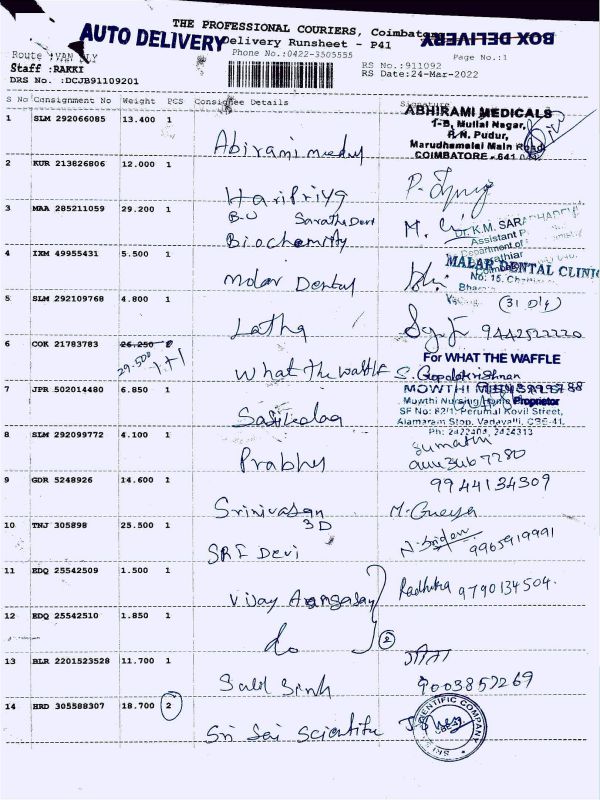 THE PROFESSIONAL COURIERS, Coimbatore
AUTO DELIVERY
Delivery Runsheet - P41
BOX DELIVERY
Route :VAN ULY
Phone No.:0422-3505555
Page No.:1
Staff :RAKKI
RS No.:911092
DRS No. :DCJB91109201
RS Date:24-Mar-2022
S No Consignment No Weight PCS Consignee Details Signature
1 SLM 292066085 13.400 1
ABHIRAMI MEDICALS
1-B, Mullai Nagar,
P.N. Pudur,
Marudhamalai Main Road
COIMBATORE - 641 041
Abirami medical
2 KUR 213826806 12.000 1
Haripriya
3 MAA 285211059 29.200 1
B.U Saratha Devi
Biochemistry
Dr. K.M. SARADHADEVI
Assistant P
Department of
4 IXM 49955431 5.500 1
Molar Dental
MALAR DENTAL CLINIC
No: 15,
5 SLM 292109768 4.800 1
(31 D/4)
Latha
9442522220
6 COK 21783783 26.250
29.500 1+1
What the waffle
For WHAT THE WAFFLE
S. Gopalakrishnan
Proprietor
7 JPR 502014480 6.850 1
Sasikala
MOWTHI
Mowthi Nursing Home
SF No: 82/1, Perumal Kovil Street,
Alamaram Stop, Vadavalli, CBE-41.
Ph: 2422404, 2424313
8 SLM 292099772 4.100 1
Prabhu
Sumathi
9 GDR 5248926 14.600 1
9944134309
Srinivasan
3D
10 TNJ 305898 25.500 1
SRI Devi
9965919991
11 EDQ 25542509 1.500 1
Vijay
Radhika 9790134504.
12 EDQ 25542510 1.850 1
do
2
13 BLR 2201523528 11.700 1
9003857269
14 HRD 305588307 18.700 2
Sri Sai Scientific
SCIENTIFIC COMPANY